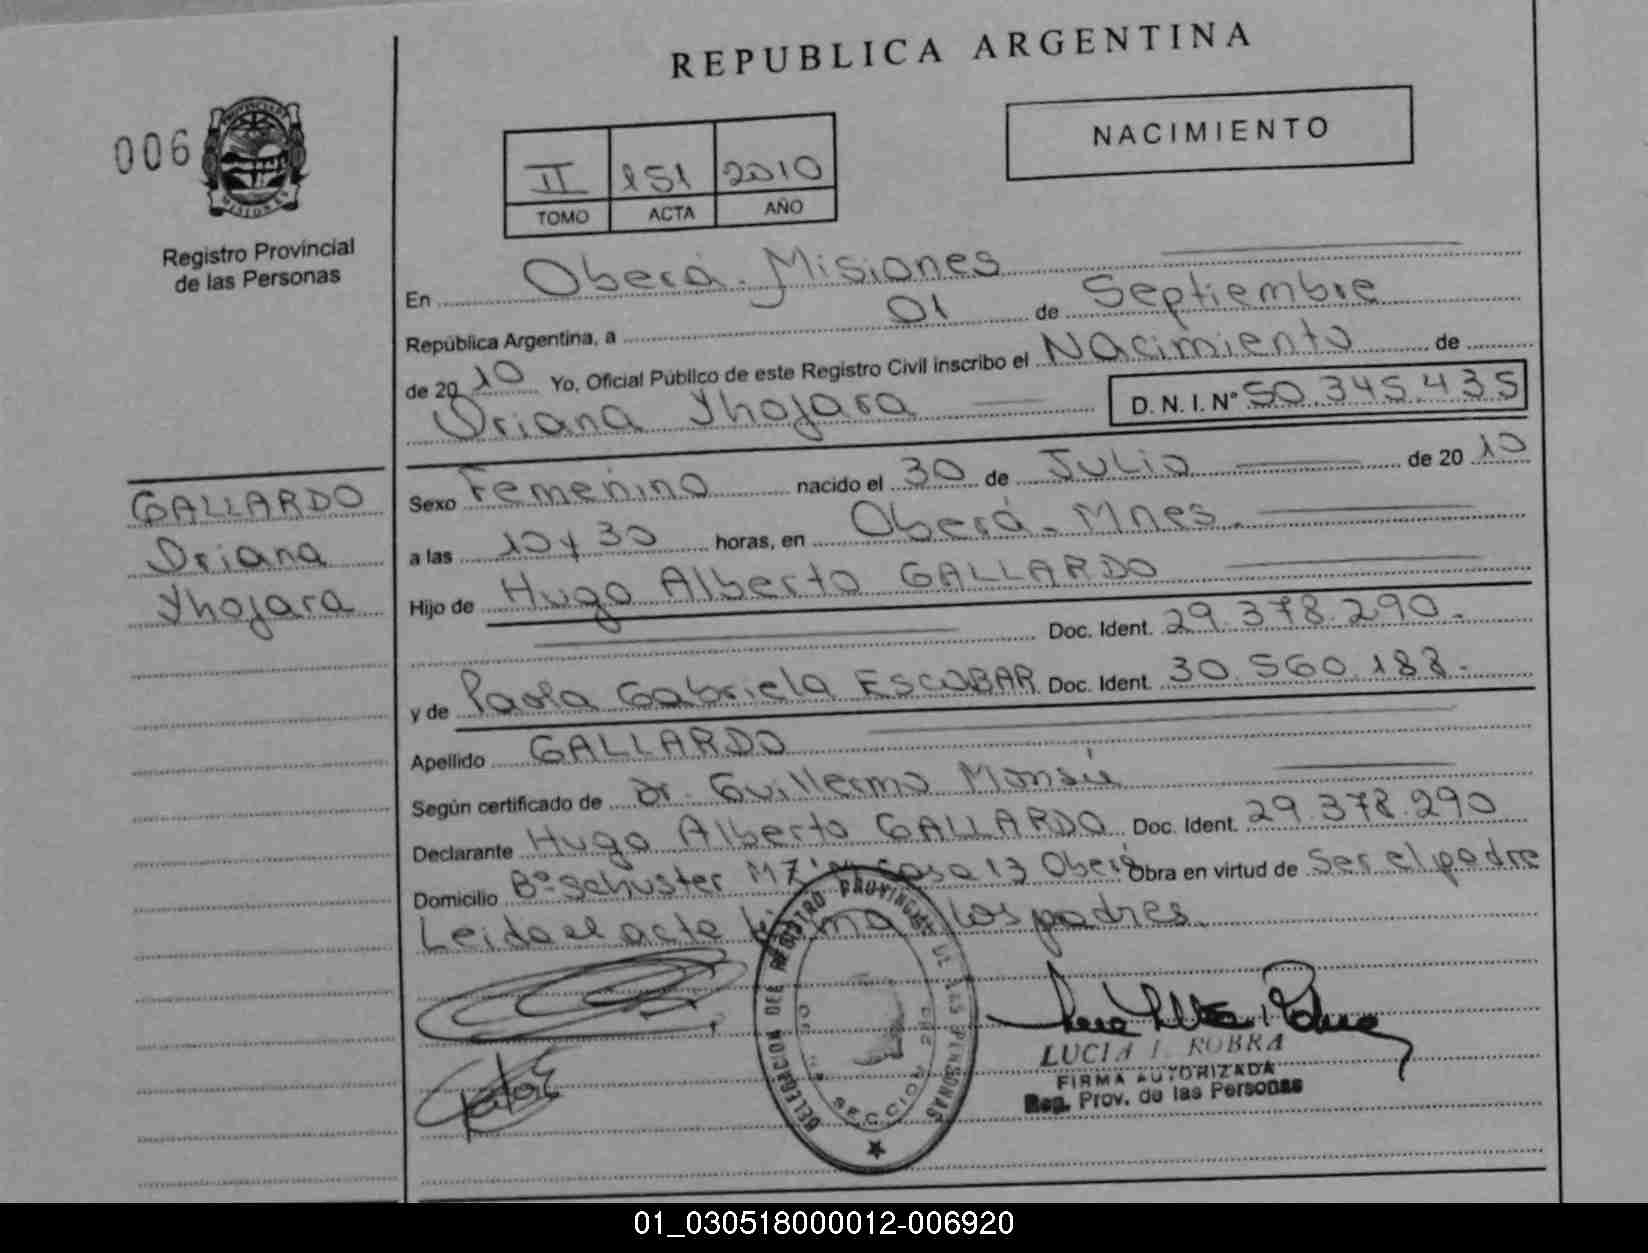 REPUBLICA ARGENTINA
006
NACIMIENTO
II 151 2010
TOMO ACTA AÑO
Registro Provincial
de las Personas
En Oberá. Misiones
República Argentina, a 01 de Septiembre
de 2010 Yo, Oficial Público de este Registro Civil inscribo el Nacimiento de
Oriana Yhojara D. N. I. N° 50.345.435
GALLARDO
Oriana
Yhojara
Sexo Femenino nacido el 30 de Julio de 2010
a las 10 y 30 horas, en Oberá. Mnes.
Hijo de Hugo Alberto GALLARDO
Doc. Ident. 29.378.290.
y de Paola Gabriela ESCOBAR Doc. Ident. 30.560.188.
Apellido GALLARDO
Según certificado de Dr. Guillermo
Declarante Hugo Alberto GALLARDO Doc. Ident. 29.378.290
Domicilio B° Schuster MZ casa 13 Oberá Obra en virtud de Ser el padre
Leida el acta los padres.
DELEGACION DEL REGISTRO PROVINCIAL DE LAS PERSONAS
SECCION
LUCIA I. ROBRA
FIRMA AUTORIZADA
Reg. Prov. de las Personas
01_030518000012-006920